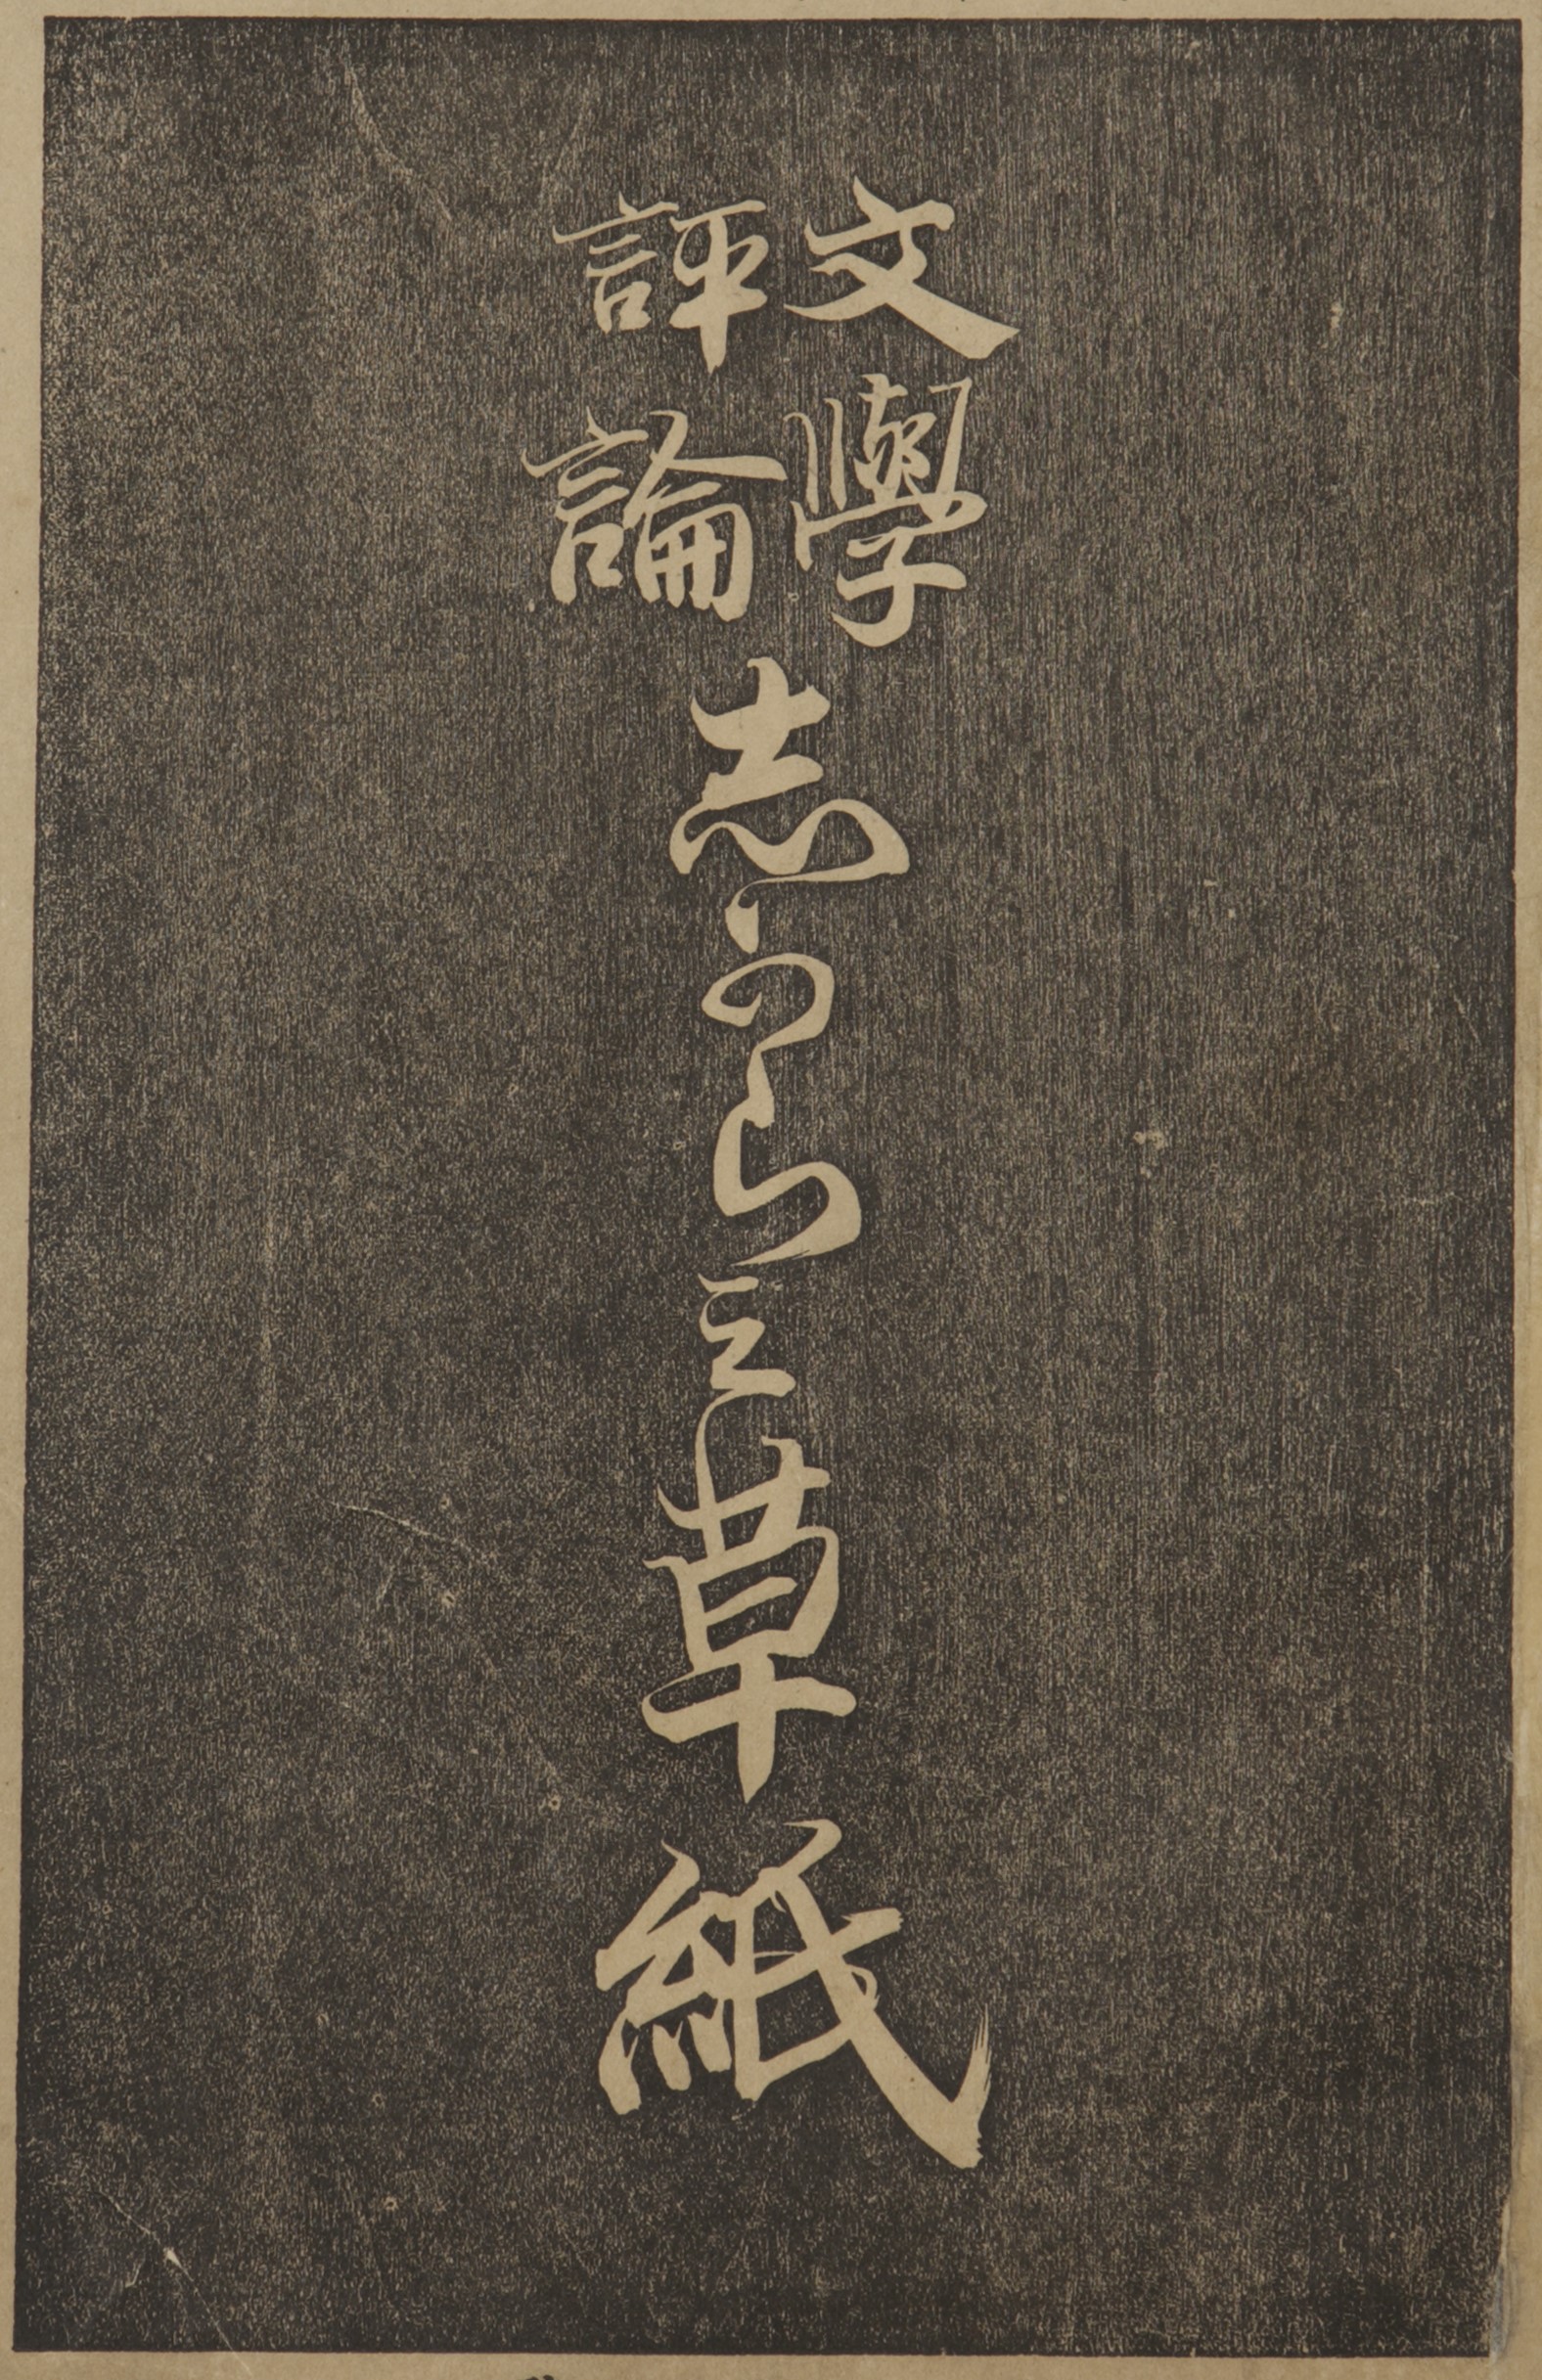 文學
評論
志がらみ草紙